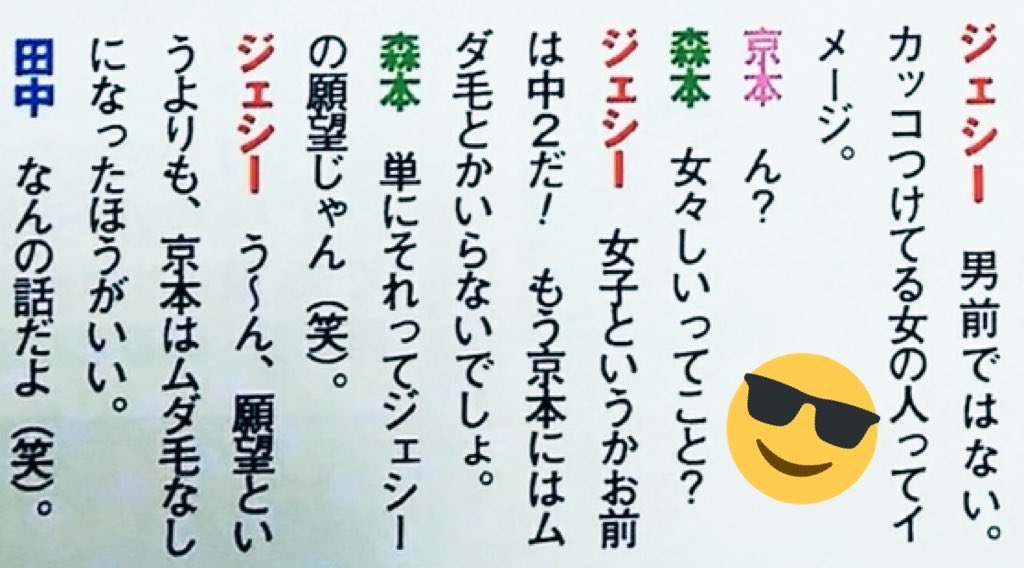 ジェシー　男前ではない。
カッコつけてる女の人ってイ
メージ。
京本　ん？
森本　女々しいってこと？
ジェシー　女子というかお前
は中２だ！　もう京本にはム
ダ毛とかいらないでしょ。
森本　単にそれってジェシー
の願望じゃん（笑）。
ジェシー　う〜ん、願望とい
うよりも、京本はムダ毛なし
になったほうがいい。
田中　なんの話だよ（笑）。